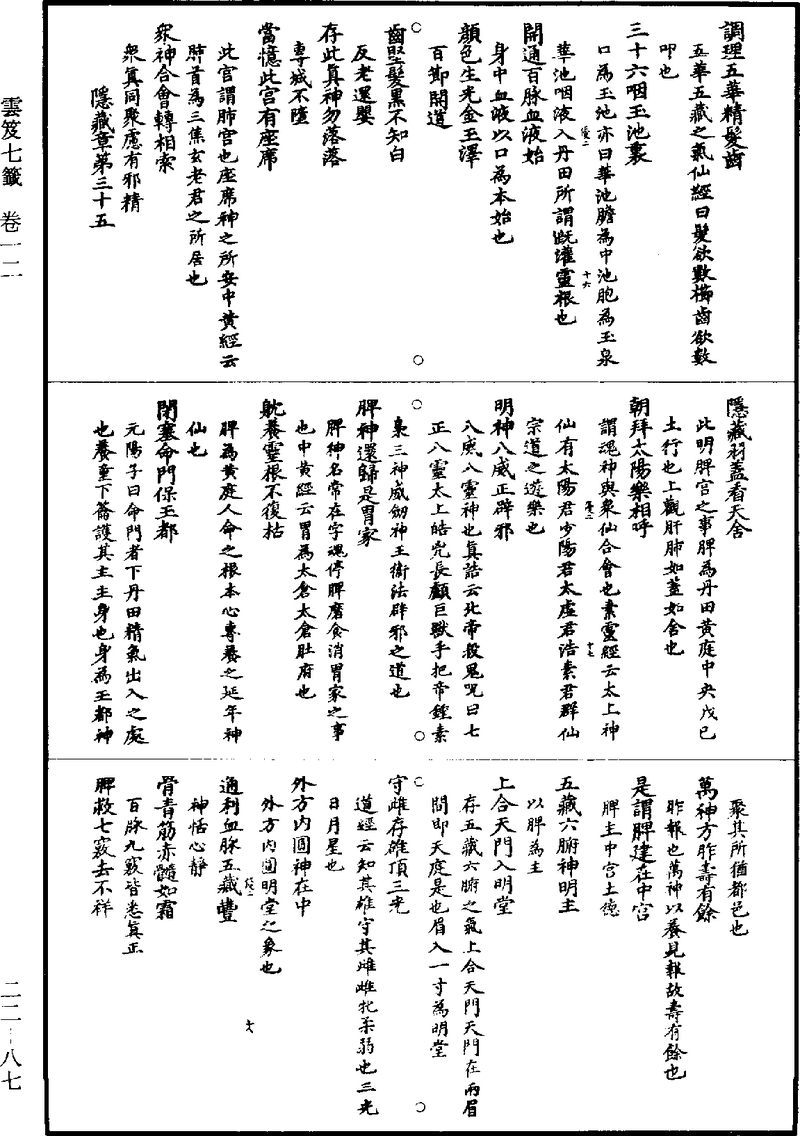 調理五華精髮齒
五華五藏之氣仙經曰髮欲數櫛齒欲數
叩也
三十六咽玉池裏
口為玉池亦曰華池膽為中池胞為玉泉
華池咽液入丹田所謂溉灌靈根也
開通百脉血液始
身中血液以口為本始也
顏色生光金玉澤
百節開道
齒堅髮黑不知白
反老還嬰
存此真神勿落落
專城不墮
當憶此宮有座席
此宮謂肺宮也座席神之所安中黃經云
肺首為三焦玄老君之所居也
眾神合會轉相索
眾真同聚慮有邪精
隱藏章第三十五
隱藏羽蓋看天舍
此明脾宮之事脾為丹田黃庭中央戊己
土行也上觀肝肺如蓋如舍也
朝拜太陽樂相呼
謂魂神與眾仙合會也素靈經云太上神
仙有太陽君少陽君太虛君浩素君群仙
宗道之遊樂也
明神八威正辟邪
八威八靈神也真誥云北帝殺鬼呪曰七
正八靈太上皓兇長顱巨獸手把帝鍾素
梟三神威劒神王衛法辟邪之道也
脾神還歸是胃家
脾神名常在字魂停脾磨食消胃家之事
也中黃經云胃為太倉太倉肚府也
躭養靈根不復枯
脾為黃庭人命之根本心專養之延年神
仙也
閉塞命門保玉都
元陽子曰命門者下丹田精氣出入之處
也養童下籥護其主主身也身為玉都神
聚其所猶都邑也
萬神方胙壽有餘
胙報也萬神以養見報故壽有餘也
是謂脾建在中宮
脾主中宮土德
五藏六腑神明主
以脾為主
上合天門入明堂
存五藏六腑之氣上合天門天門在兩眉
間即天庭是也眉入一寸為明堂
守雌存雄頂三光
道經云知其雄守其雌雌牝柔弱也三光
日月星也
外方內圓神在中
外方內圓明堂之象也
通利血脉五藏豐
神恬心靜
骨青筋赤髓如霜
百脉九竅皆悉真正
脾救七竅去不祥
雲笈七籤 卷一二
二二—八七